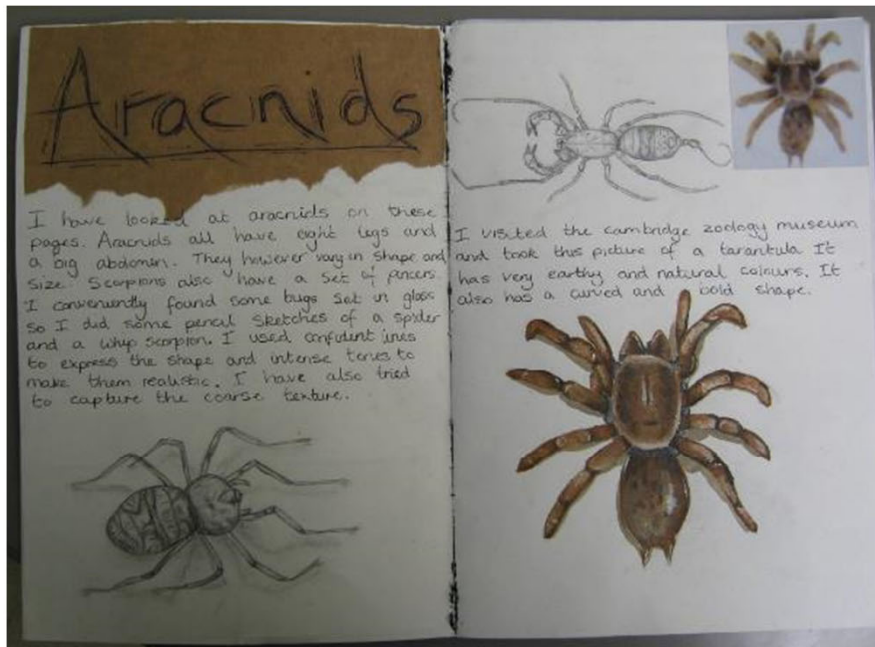 Aracnids
I have looked at aracnids on these
pages. Aracnids all have eight legs and
a big abdomen. They however vary in shape and
size. Scorpions also have a set of pincers.
I conveniently found some bugs set in glass
so I did some pencil sketches of a spider
and a whip scorpion. I used confident lines
to express the shape and intense tones to
make them realistic. I have also tried
to capture the coarse texture.
I visited the cambridge zoology museum
and took this picture of a tarantula It
has very earthy and natural colours. It
also has a curved and bold shape.